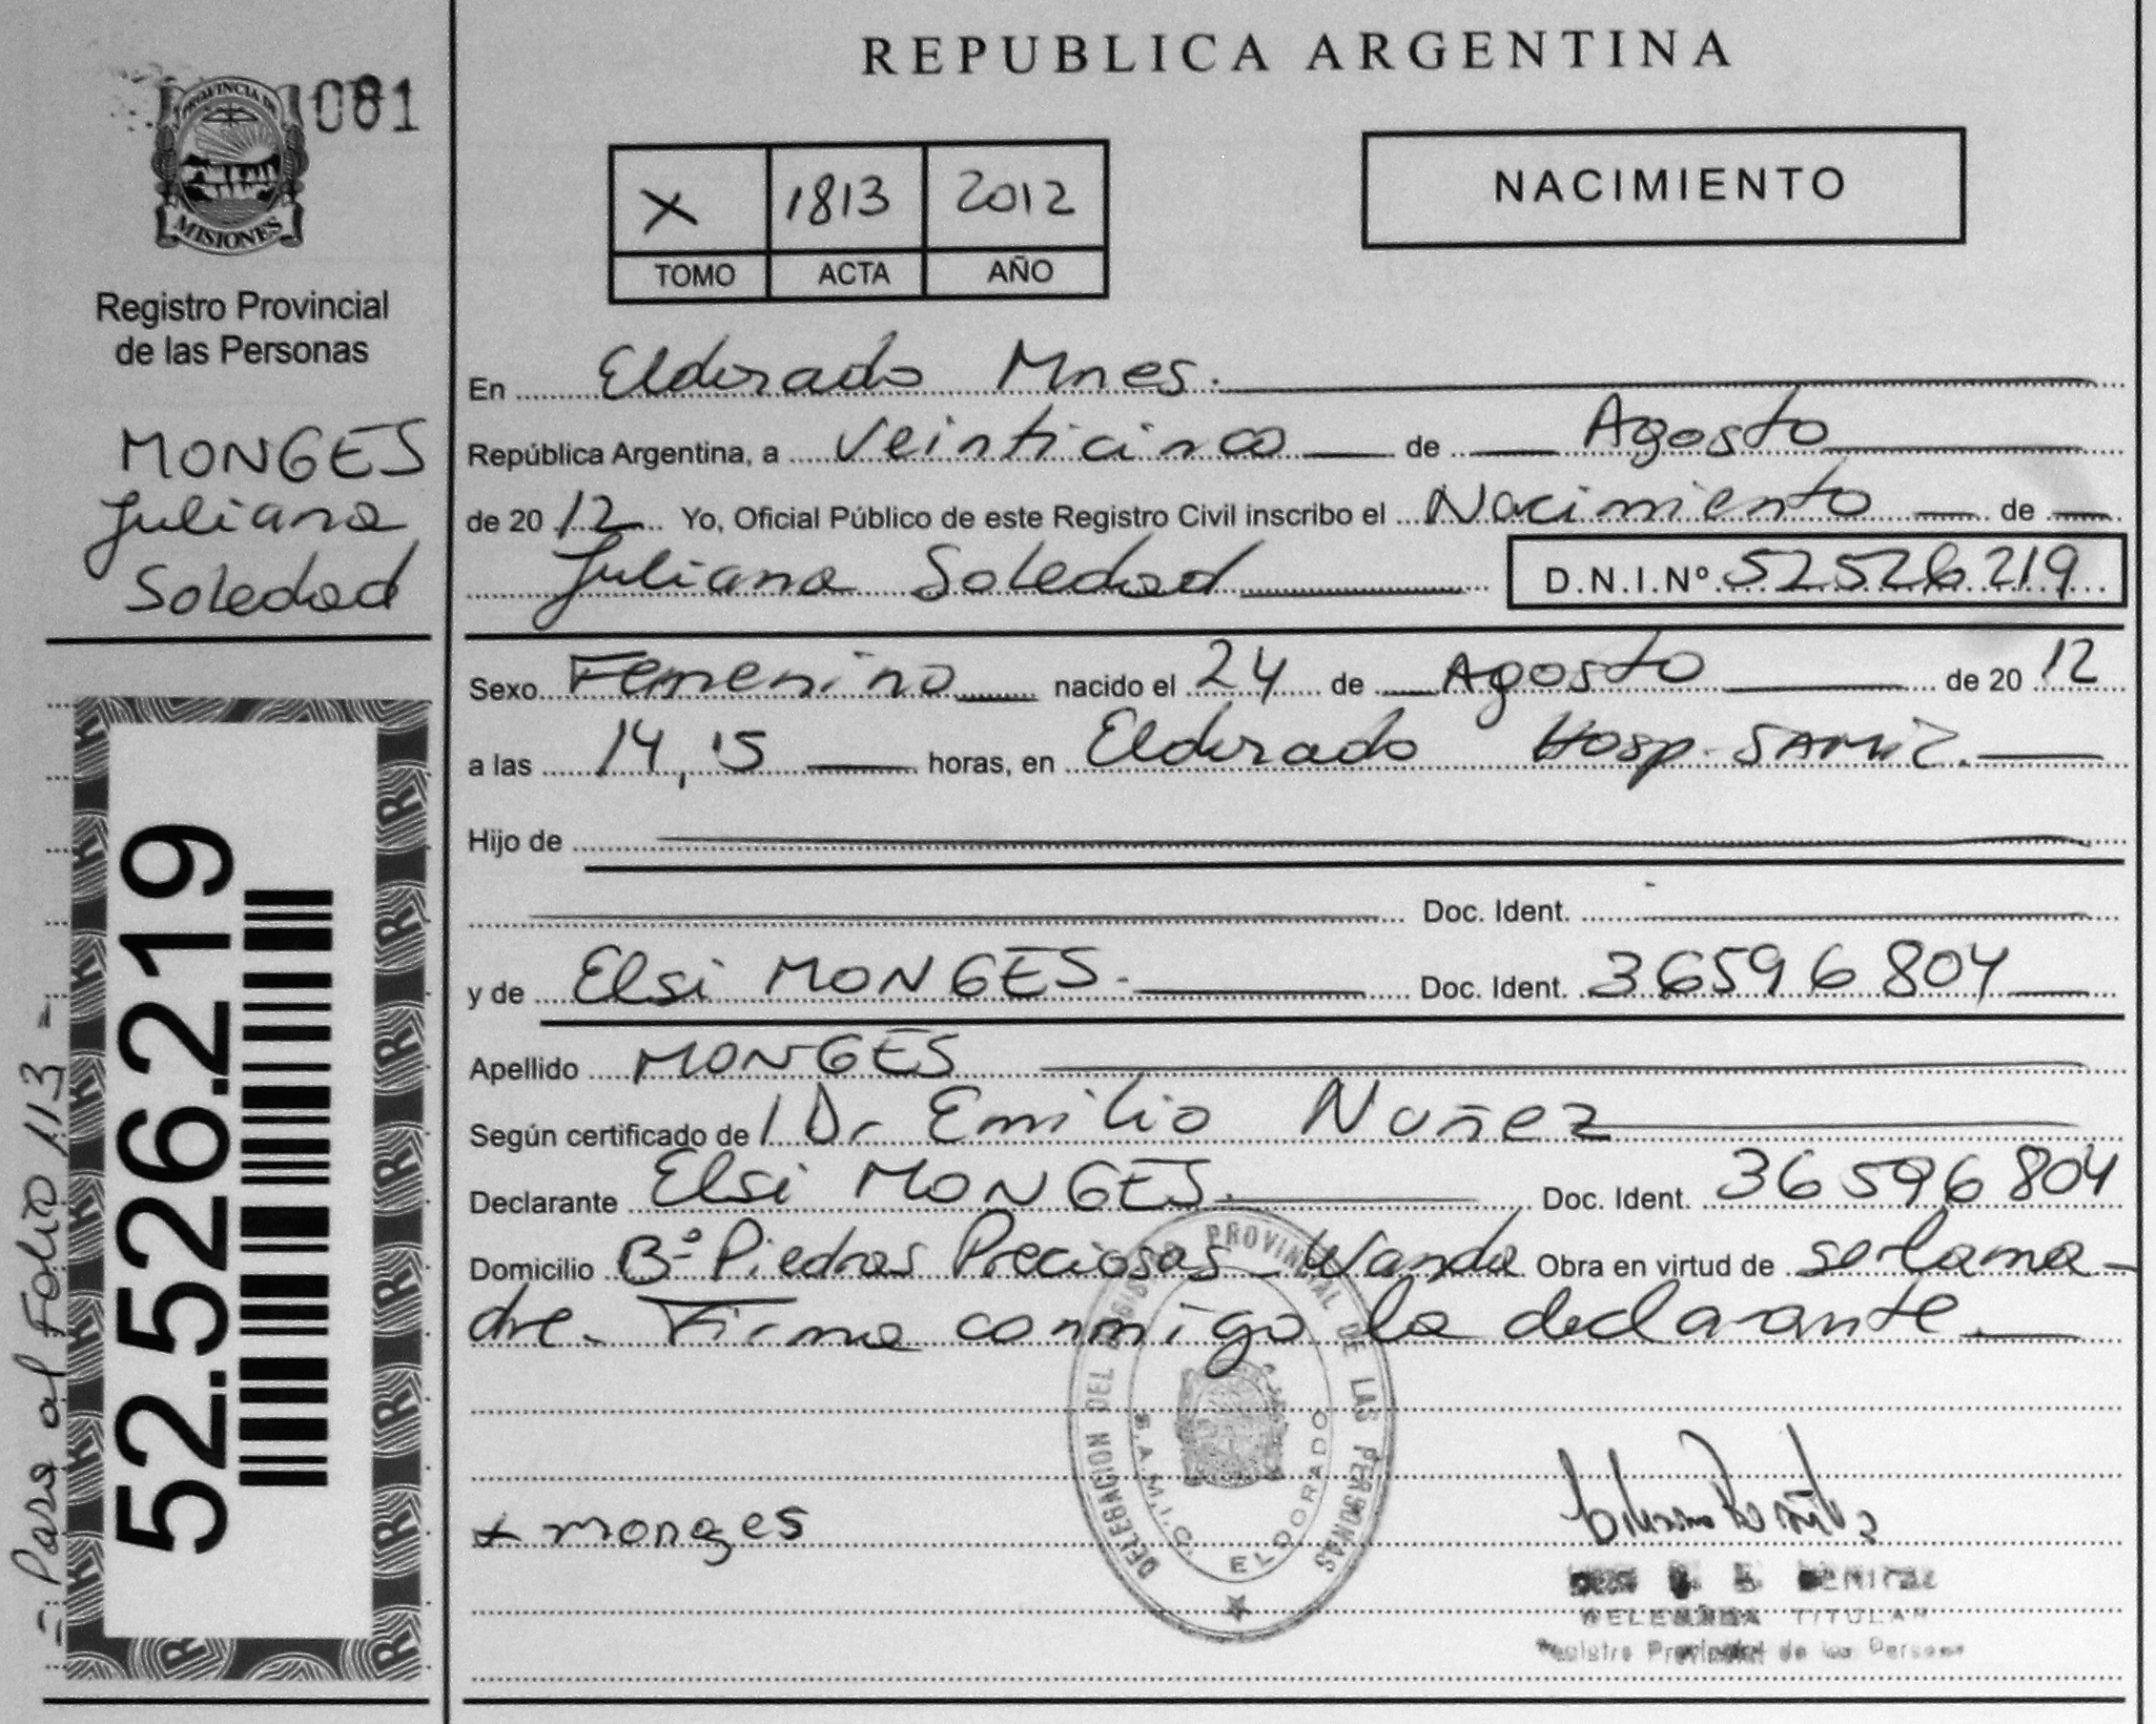 REPUBLICA ARGENTINA
PROVINCIA DE
MISIONES
081
Registro Provincial
de las Personas
MONGES
Juliana
Soledad
X 1813 2012
TOMO ACTA AÑO
NACIMIENTO
En Eldorado Mnes.
República Argentina, a veinticinco de Agosto
de 2012 Yo, Oficial Público de este Registro Civil inscribo el Nacimiento de
Juliana Soledad D.N.I.Nº 52526219
Sexo Femenino nacido el 24 de Agosto de 2012
a las 14,15 horas, en Eldorado Hosp. SAMIC.
Hijo de
Doc. Ident.
y de Elsi MONGES. Doc. Ident. 36596804
Apellido MONGES
Según certificado de l Dr Emilio Nuñez
Declarante Elsi MONGES. Doc. Ident. 36596804
Domicilio Bº Piedras Preciosas - Wanda Obra en virtud de ser la ma-
dre. Firma conmigo la declarante.
x monges
52.526.219
= Pasa al Folio 113 =
DELEGACION DEL REGISTRO PROVINCIAL DE LAS PERSONAS
S.A.M.I.C. ELDORADO
TITULAR
Registro Provincial de las Personas